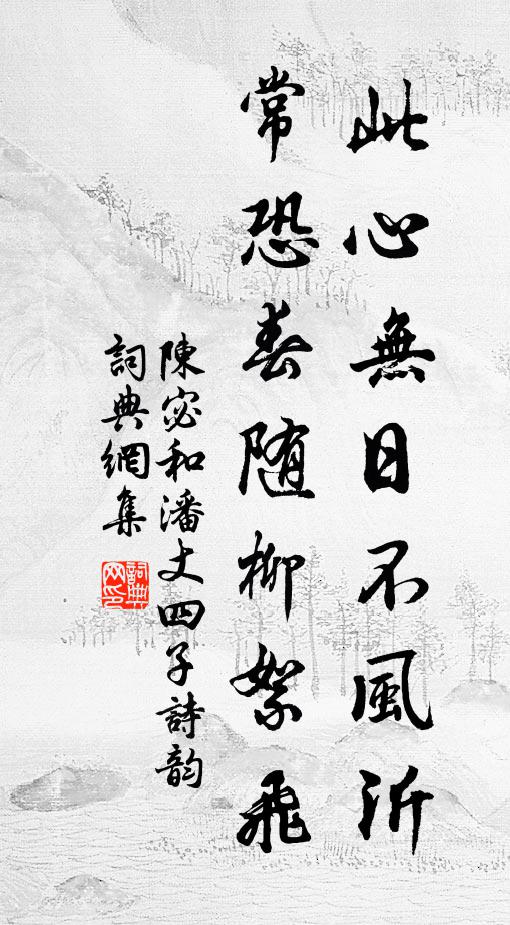 此心無日不風沂
常恐春随柳絮飛
陳宓和潘丈四子詩韵
詞典網集
詞典网印